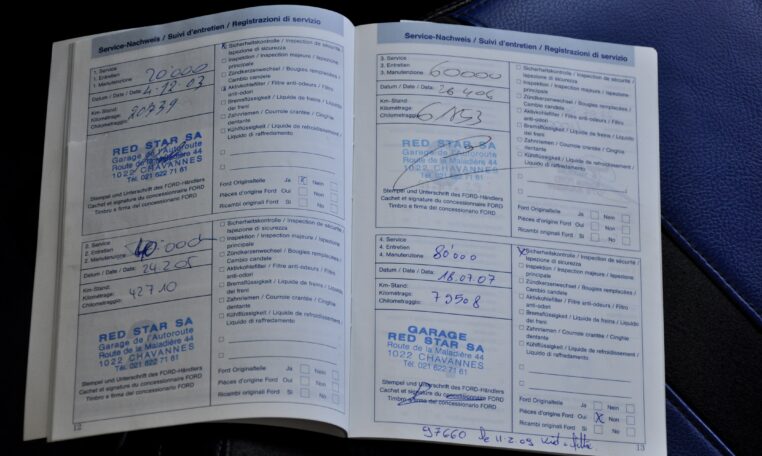 Service-Nachweis / Suivi d'entretien / Registrazioni di servizio
1. Service
1. Entretien
1. Manutenzione 20'000
Datum / Date / Data: 4.12.03
Km-Stand:
Kilométrage:
Chilometraggio: 20339
RED STAR SA
Garage de l'Autoroute
Route de la Maladière 44
1022 CHAVANNES
Tél. 021 622 71 61
Stempel und Unterschrift des FORD-Händlers
Cachet et signature du concessionnaire FORD
Timbro e firma del concessionario FORD
Sicherheitskontrolle / Inspection de sécurité / Ispezione di sicurezza
Inspektion / Inspection majeure / Ispezione principale
Zündkerzenwechsel / Bougies remplacées / Cambio candele
Aktivkohlefilter / Filtre anti-odeurs / Filtro anti-odori
Bremsflüssigkeit / Liquide de freins / Liquido dei freni
Zahnriemen / Courroie crantée / Cinghie dentante
Kühlflüssigkeit / Liquide de refroidissement / Liquido di raffredamento
Ford Originalteile Ja X Nein
Pièces d'origine Ford Oui Non
Ricambi originali Ford Si No
2. Entretien
2. Manutenzione 40'000
Datum / Date / Data: 24.2.05
Km-Stand:
Kilométrage:
Chilometraggio: 42710
RED STAR SA
Garage de l'Autoroute
Route de la Maladière 44
1022 CHAVANNES
Tél. 021 622 71 61
Stempel und Unterschrift des FORD-Händlers
Cachet et signature du concessionnaire FORD
Timbro e firma del concessionario FORD
Sicherheitskontrolle / Inspection de sécurité / Ispezione di sicurezza
Inspektion / Inspection majeure / Ispezione principale
Zündkerzenwechsel / Bougies remplacées / Cambio candele
Aktivkohlefilter / Filtre anti-odeurs / Filtro anti-odori
Bremsflüssigkeit / Liquide de freins / Liquido dei freni
Zahnriemen / Courroie crantée / Cinghie dentante
Kühlflüssigkeit / Liquide de refroidissement / Liquido di raffredamento
Ford Originalteile Ja Nein
Pièces d'origine Ford Oui Non
Ricambi originali Ford Si No
12
Service-Nachweis / Suivi d'entretien / Registrazioni di servizio
3. Service
3. Entretien
3. Manutenzione 60000
Datum / Date / Data:
Km-Stand:
Kilométrage:
Chilometraggio:
RED STAR SA
Garage de l'Autoroute
Route de la Maladière 44
1022 CHAVANNES
Tél. 021 622 71 61
Stempel und Unterschrift des FORD-Händlers
Cachet et signature du concessionnaire FORD
Timbro e firma del concessionario FORD
Sicherheitskontrolle / Inspection de sécurité / Ispezione di sicurezza
Inspektion / Inspection majeure / Ispezione principale
Zündkerzenwechsel / Bougies remplacées / Cambio candele
Aktivkohlefilter / Filtre anti-odeurs / Filtro anti-odori
Bremsflüssigkeit / Liquide de freins / Liquido dei freni
Zahnriemen / Courroie crantée / Cinghie dentante
Kühlflüssigkeit / Liquide de refroidissement / Liquido di raffredamento
Ford Originalteile Ja Nein
Pièces d'origine Ford Oui Non
Ricambi originali Ford Si No
4. Service
4. Entretien
4. Manutenzione 80'000
Datum / Date / Data: 18.07.07
Km-Stand:
Kilométrage:
Chilometraggio: 79508
GARAGE
RED STAR SA
Route de la Maladière 44
1022 CHAVANNES
Tél. 021 622 71 61
Stempel und Unterschrift des FORD-Händlers
Cachet et signature du concessionnaire FORD
Timbro e firma del concessionario FORD
Sicherheitskontrolle / Inspection de sécurité / Ispezione di sicurezza
Inspektion / Inspection majeure / Ispezione principale
Zündkerzenwechsel / Bougies remplacées / Cambio candele
Aktivkohlefilter / Filtre anti-odeurs / Filtro anti-odori
Bremsflüssigkeit / Liquide de freins / Liquido dei freni
Zahnriemen / Courroie crantée / Cinghie dentante
Kühlflüssigkeit / Liquide de refroidissement / Liquido di raffredamento
Ford Originalteile Ja Nein
Pièces d'origine Ford Oui X Non
Ricambi originali Ford Si No
97660 le 11.2.09
13